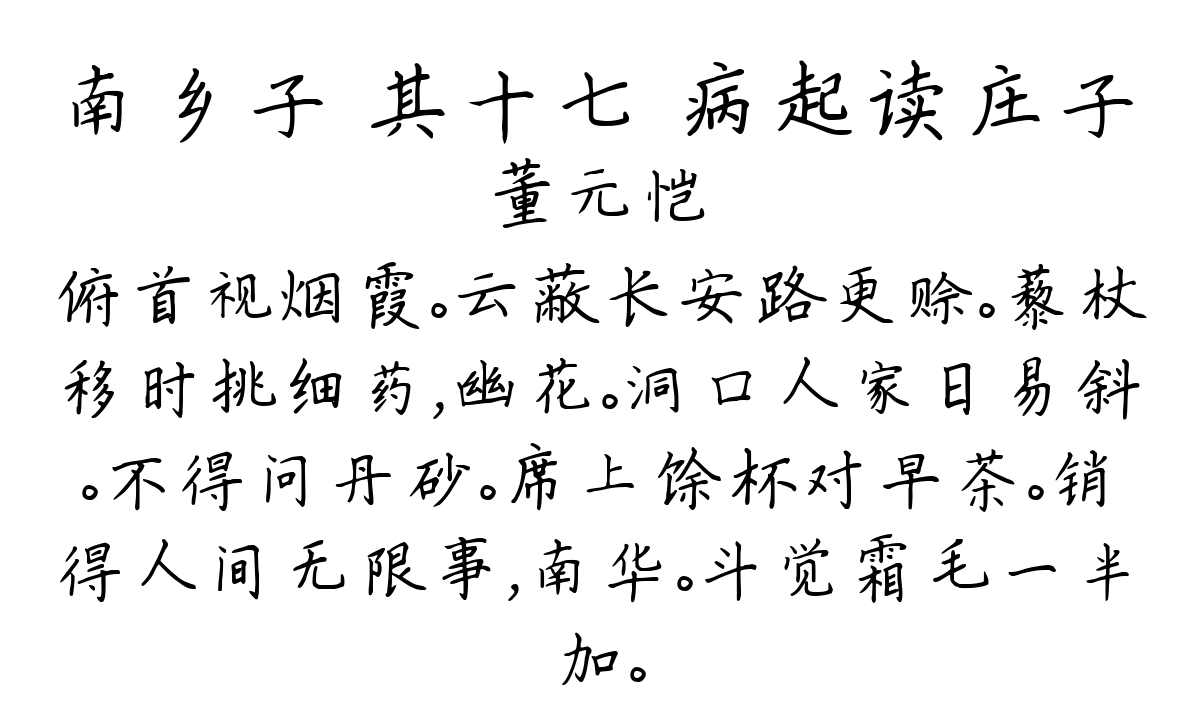 南乡子 其十七 病起读庄子
董元恺
俯首视烟霞。云蔽长安路更赊。藜杖
移时挑细药,幽花。洞口人家日易斜
。不得问丹砂。席上馀杯对早茶。销
得人间无限事,南华。斗觉霜毛一半
加。